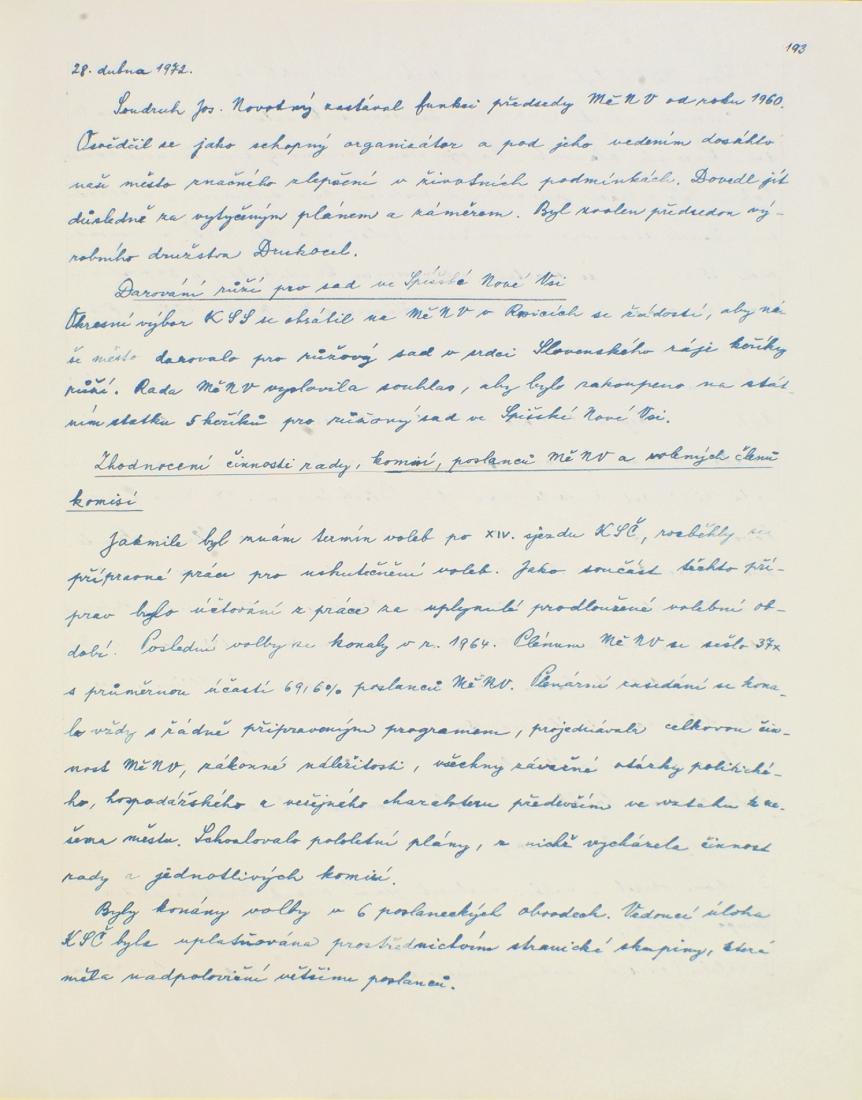 193
28. dubna 1972.
Soudruh Jos. Novotný zastával funkci předsedy MěNV od roku 1960.
Osvědčil se jako schopný organizátor a pod jeho vedením dosáhlo
naše město značného zlepšení v životních podmínkách. Dovedl jít
důsledně za vytyčeným plánem a záměrem. Byl zvolen předsedou vý-
robního družstva Drukocel.
Darování růží pro sad ve Spišské Nové Vsi
Okresní výbor KSS se obrátil na MěNV v Řečicích se žádostí, aby na-
še město darovalo pro růžový sad v srdci Slovenského ráje keříky
růží. Rada MěNV vyslovila souhlas, aby bylo zakoupeno na stát-
ním statku 5 keříků pro růžový sad ve Spišské Nové Vsi.
Zhodnocení činnosti rady, komisí, poslanců MěNV a volených členů
komisí
Jakmile byl znám termín voleb po XIV. sjezdu KSČ, rozběhly se
přípravné práce pro uskutečnění voleb. Jako součást těchto pří-
prav bylo účtování z práce za uplynulé prodloužené volební ob-
dobí. Poslední volby se konaly v r. 1964. Plénum MěNV se sešlo 37x
s průměrnou účastí 69,6% poslanců MěNV. Plenární zasedání se kona-
la vždy s řádně připraveným programem, projednávala celkovou čin-
nost MěNV, zákonné náležitosti, všechny závažné otázky politické-
ho, hospodářského a veřejného charakteru především ve vztahu k na-
šemu městu. Schvalovalo pololetní plány, z nichž vycházela činnost
rady a jednotlivých komisí.
Byly konány volby v 6 poslaneckých obvodech. Vedoucí úloha
KSČ byla uplatňována prostřednictvím stranické skupiny, která
měla nadpoloviční většinu poslanců.